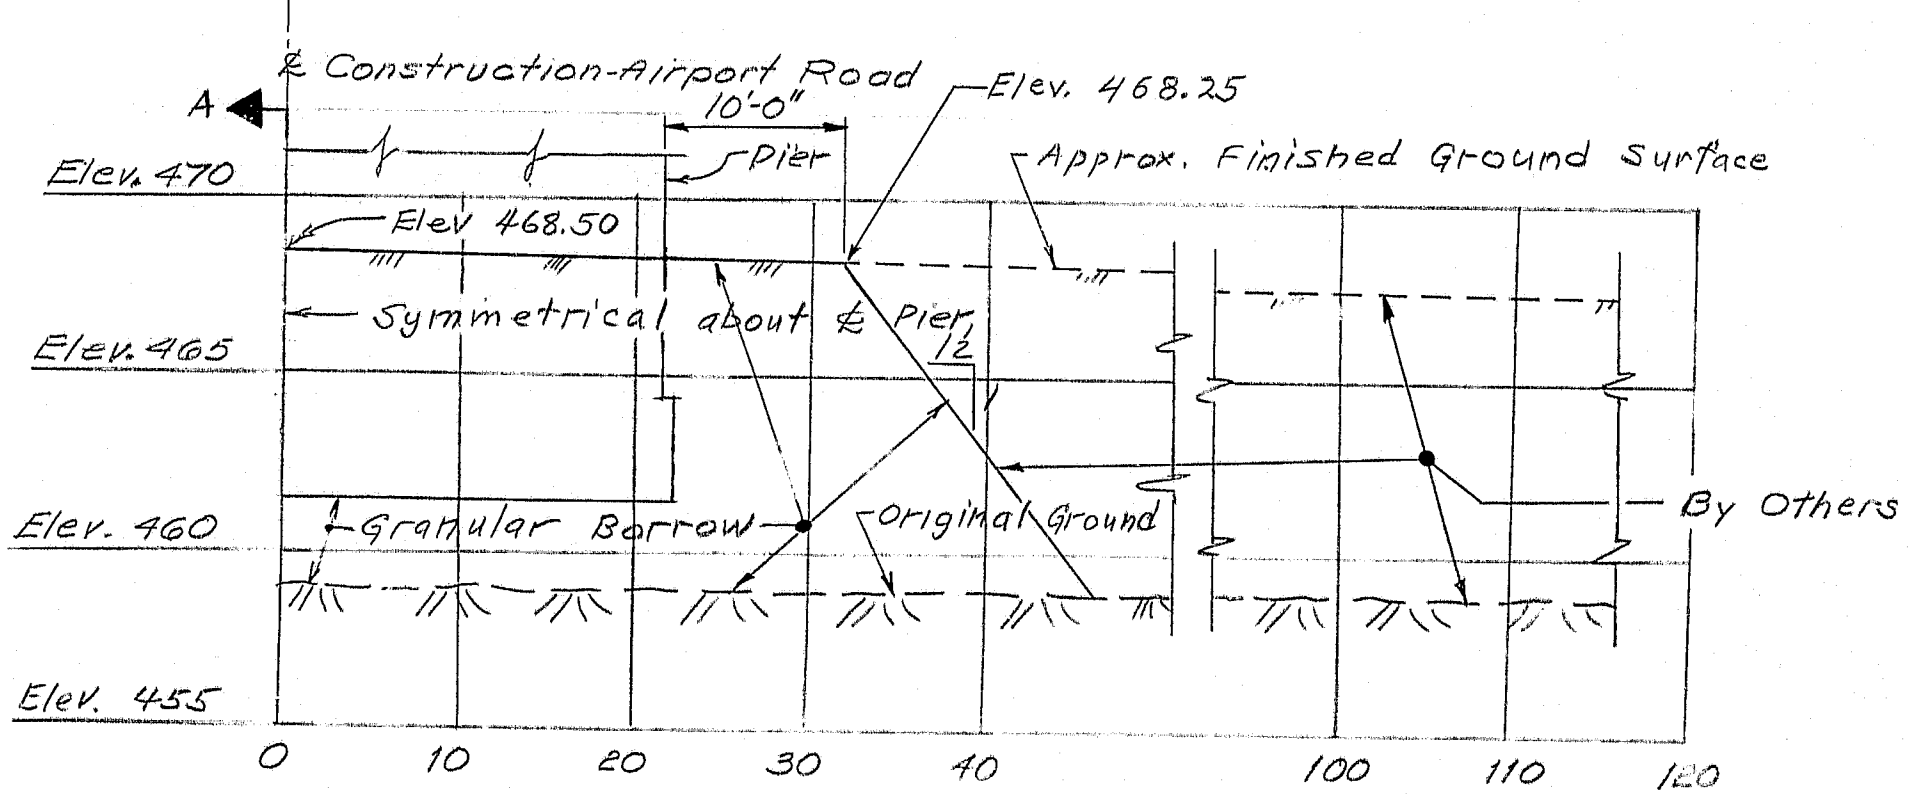 ℄ Construction-Airport Road
A
10'-0"
Elev. 468.25
Pier
Approx. Finished Ground Surface
Elev. 470
Elev 468.50
Symmetrical about ℄ Pier
Elev. 465
12
1
Granular Borrow
Original Ground
By Others
Elev. 460
Elev. 455
0 10 20 30 40 100 110 120